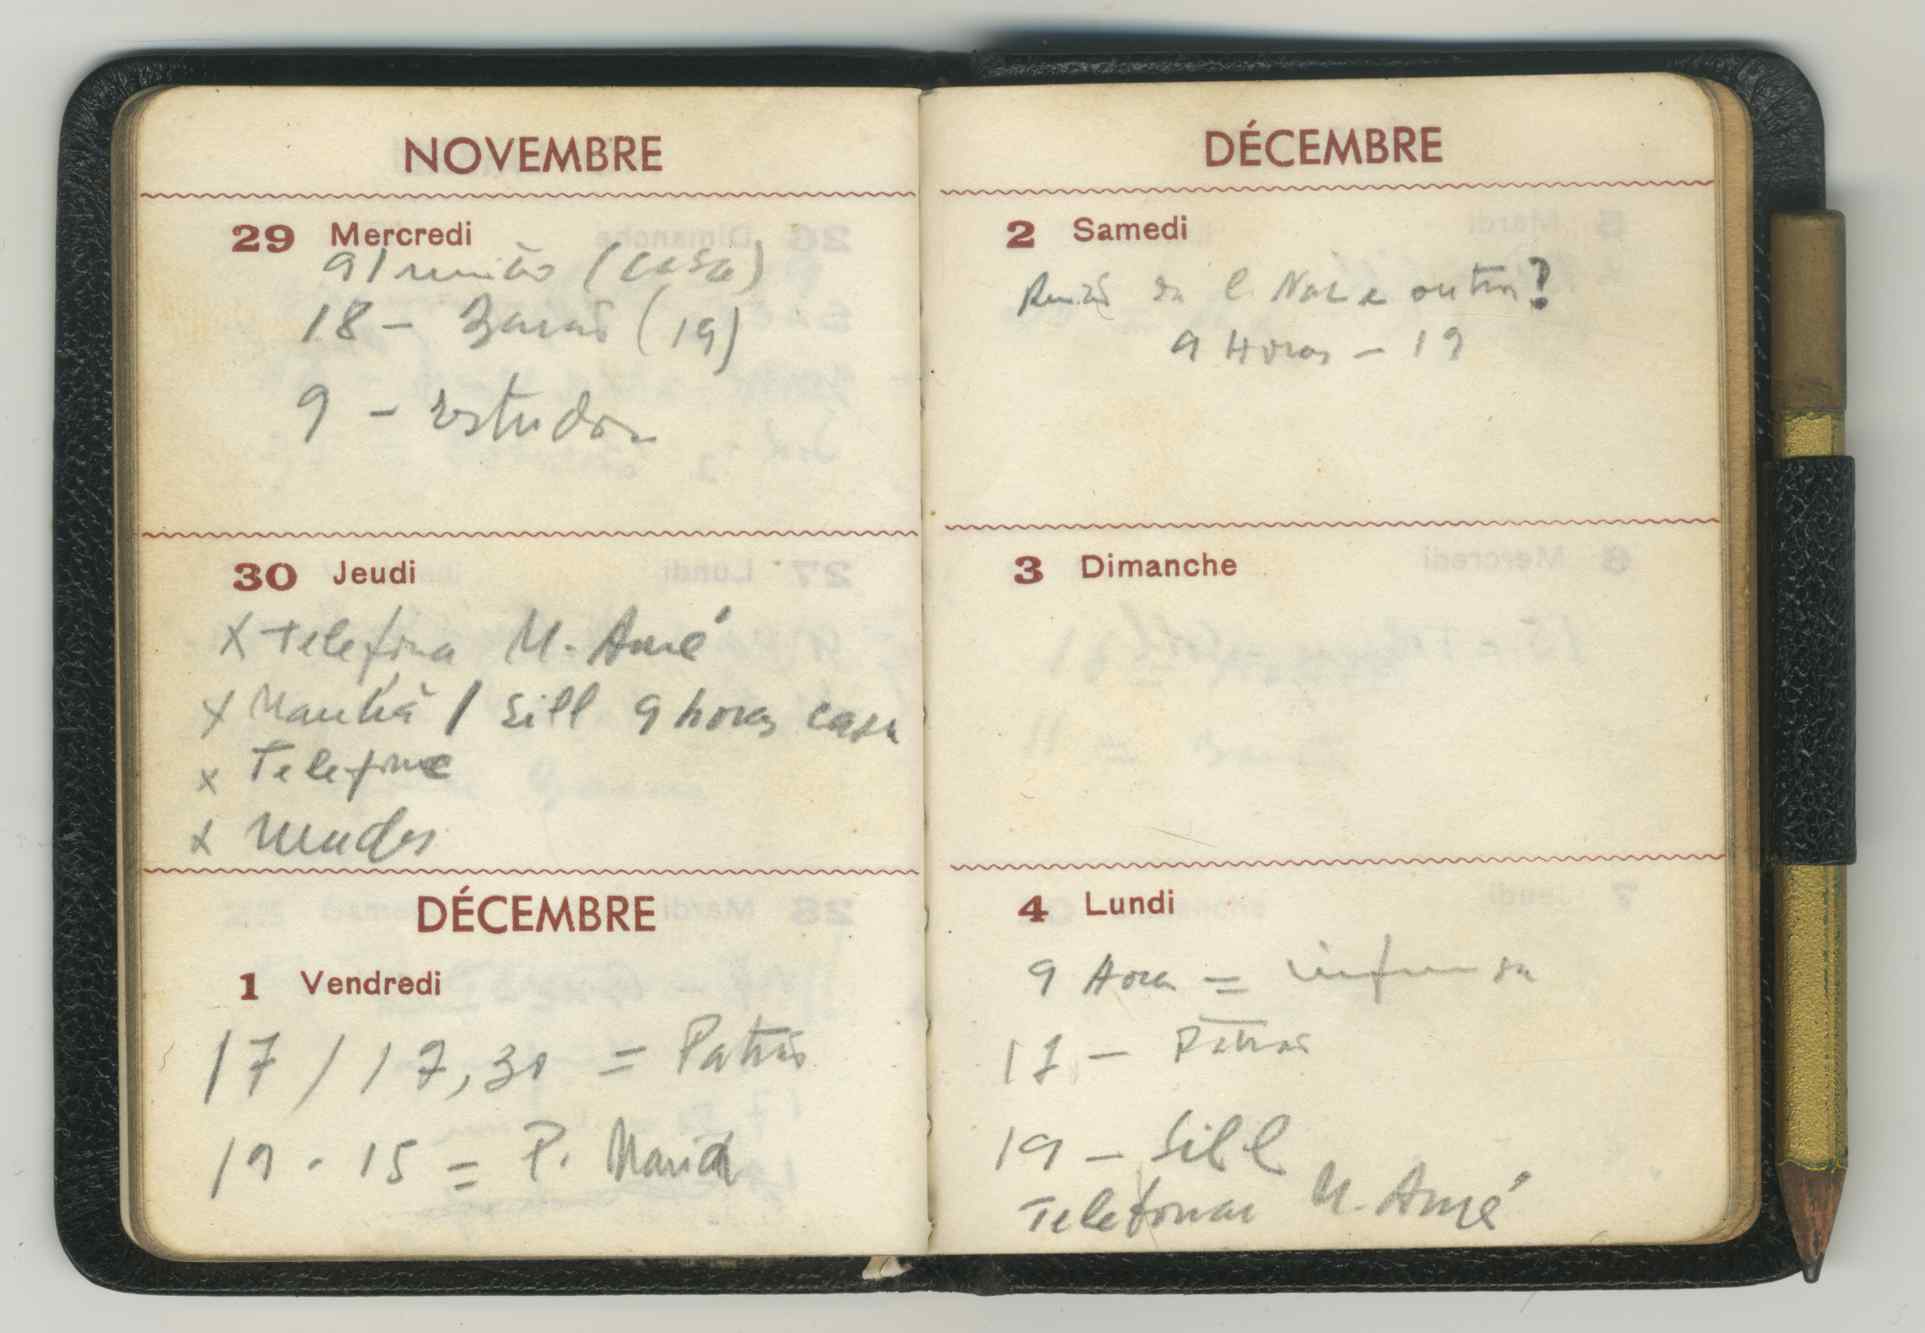 NOVEMBRE
29 Mercredi
9 / (casa)
18 – (19)
9 – Estudos
30 Jeudi
x Telefona M. Amé
x Manhã / Sill 9 horas casa
x Telefone
x
DÉCEMBRE
1 Vendredi
17 / 17,30 = Patrão
19 - 15 = P. Maria
DÉCEMBRE
2 Samedi
e outros?
9 Horas – 19
3 Dimanche
4 Lundi
9 Horas =
17 – Patrão
19 – Sill
Telefonar M. Amé